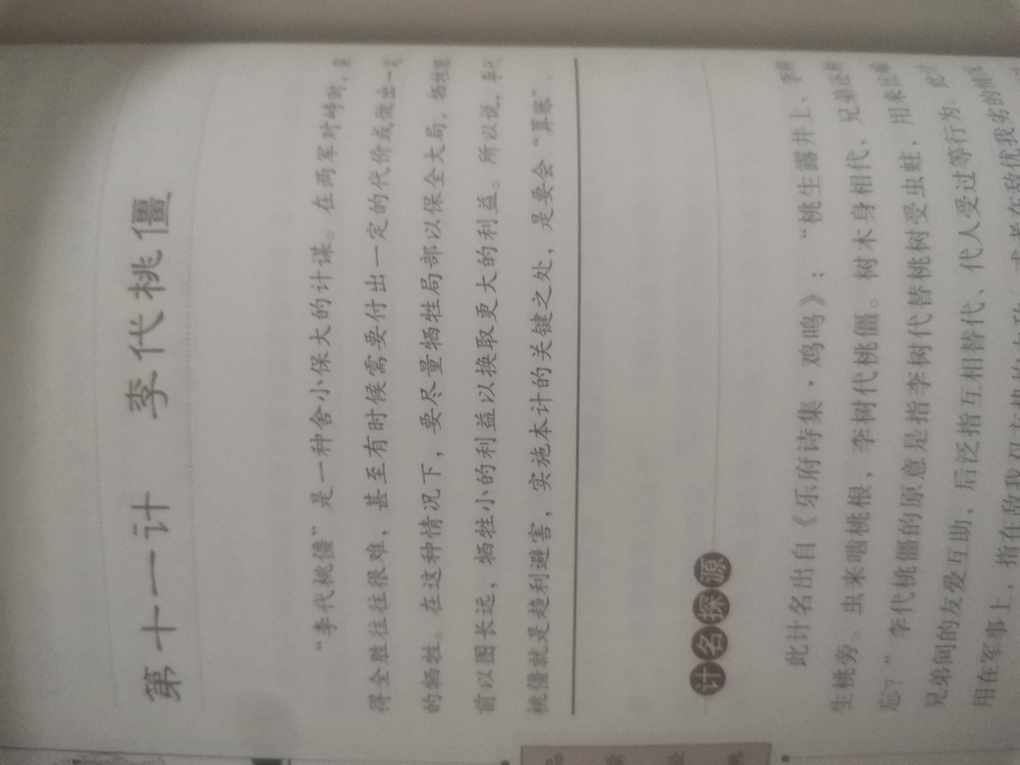 第十一计 李代桃僵
“李代桃僵”是一种舍小保大的计谋。在两军对峙时，
得全胜往往很难，甚至有时候需要付出一定的代价或做出一定
的牺牲。在这种情况下，要尽量牺牲局部以保全大局，牺牲
前以图长远，牺牲小的利益以换取更大的利益。所以说，李代
桃僵就是趋利避害，实施本计的关键之处，是要会“算账”。
计名探源
此计名出自《乐府诗集·鸡鸣》：“桃生露井上，李树
生桃旁。虫来啮桃根，李树代桃僵。树木身相代，兄弟还相
忘？”李代桃僵的原意是指李树代替桃树受虫蛀，用来比喻
兄弟间的友爱互助，后泛指互相替代、代人受过等行为。此
用在军事上，指在敌我双方势均力敌，或者在敌优我劣的情